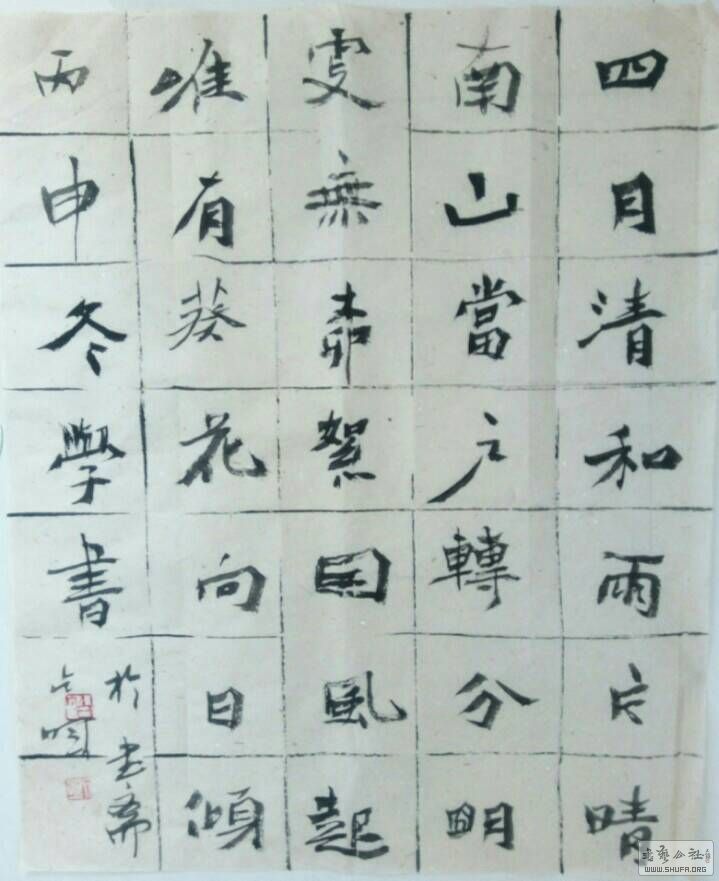 四月清和雨乍晴
南山當户轉分明
更無柳絮因風起
惟有葵花向日傾
丙申冬學書
於書斋
书艺公社
WWW.SHUFA.ORG